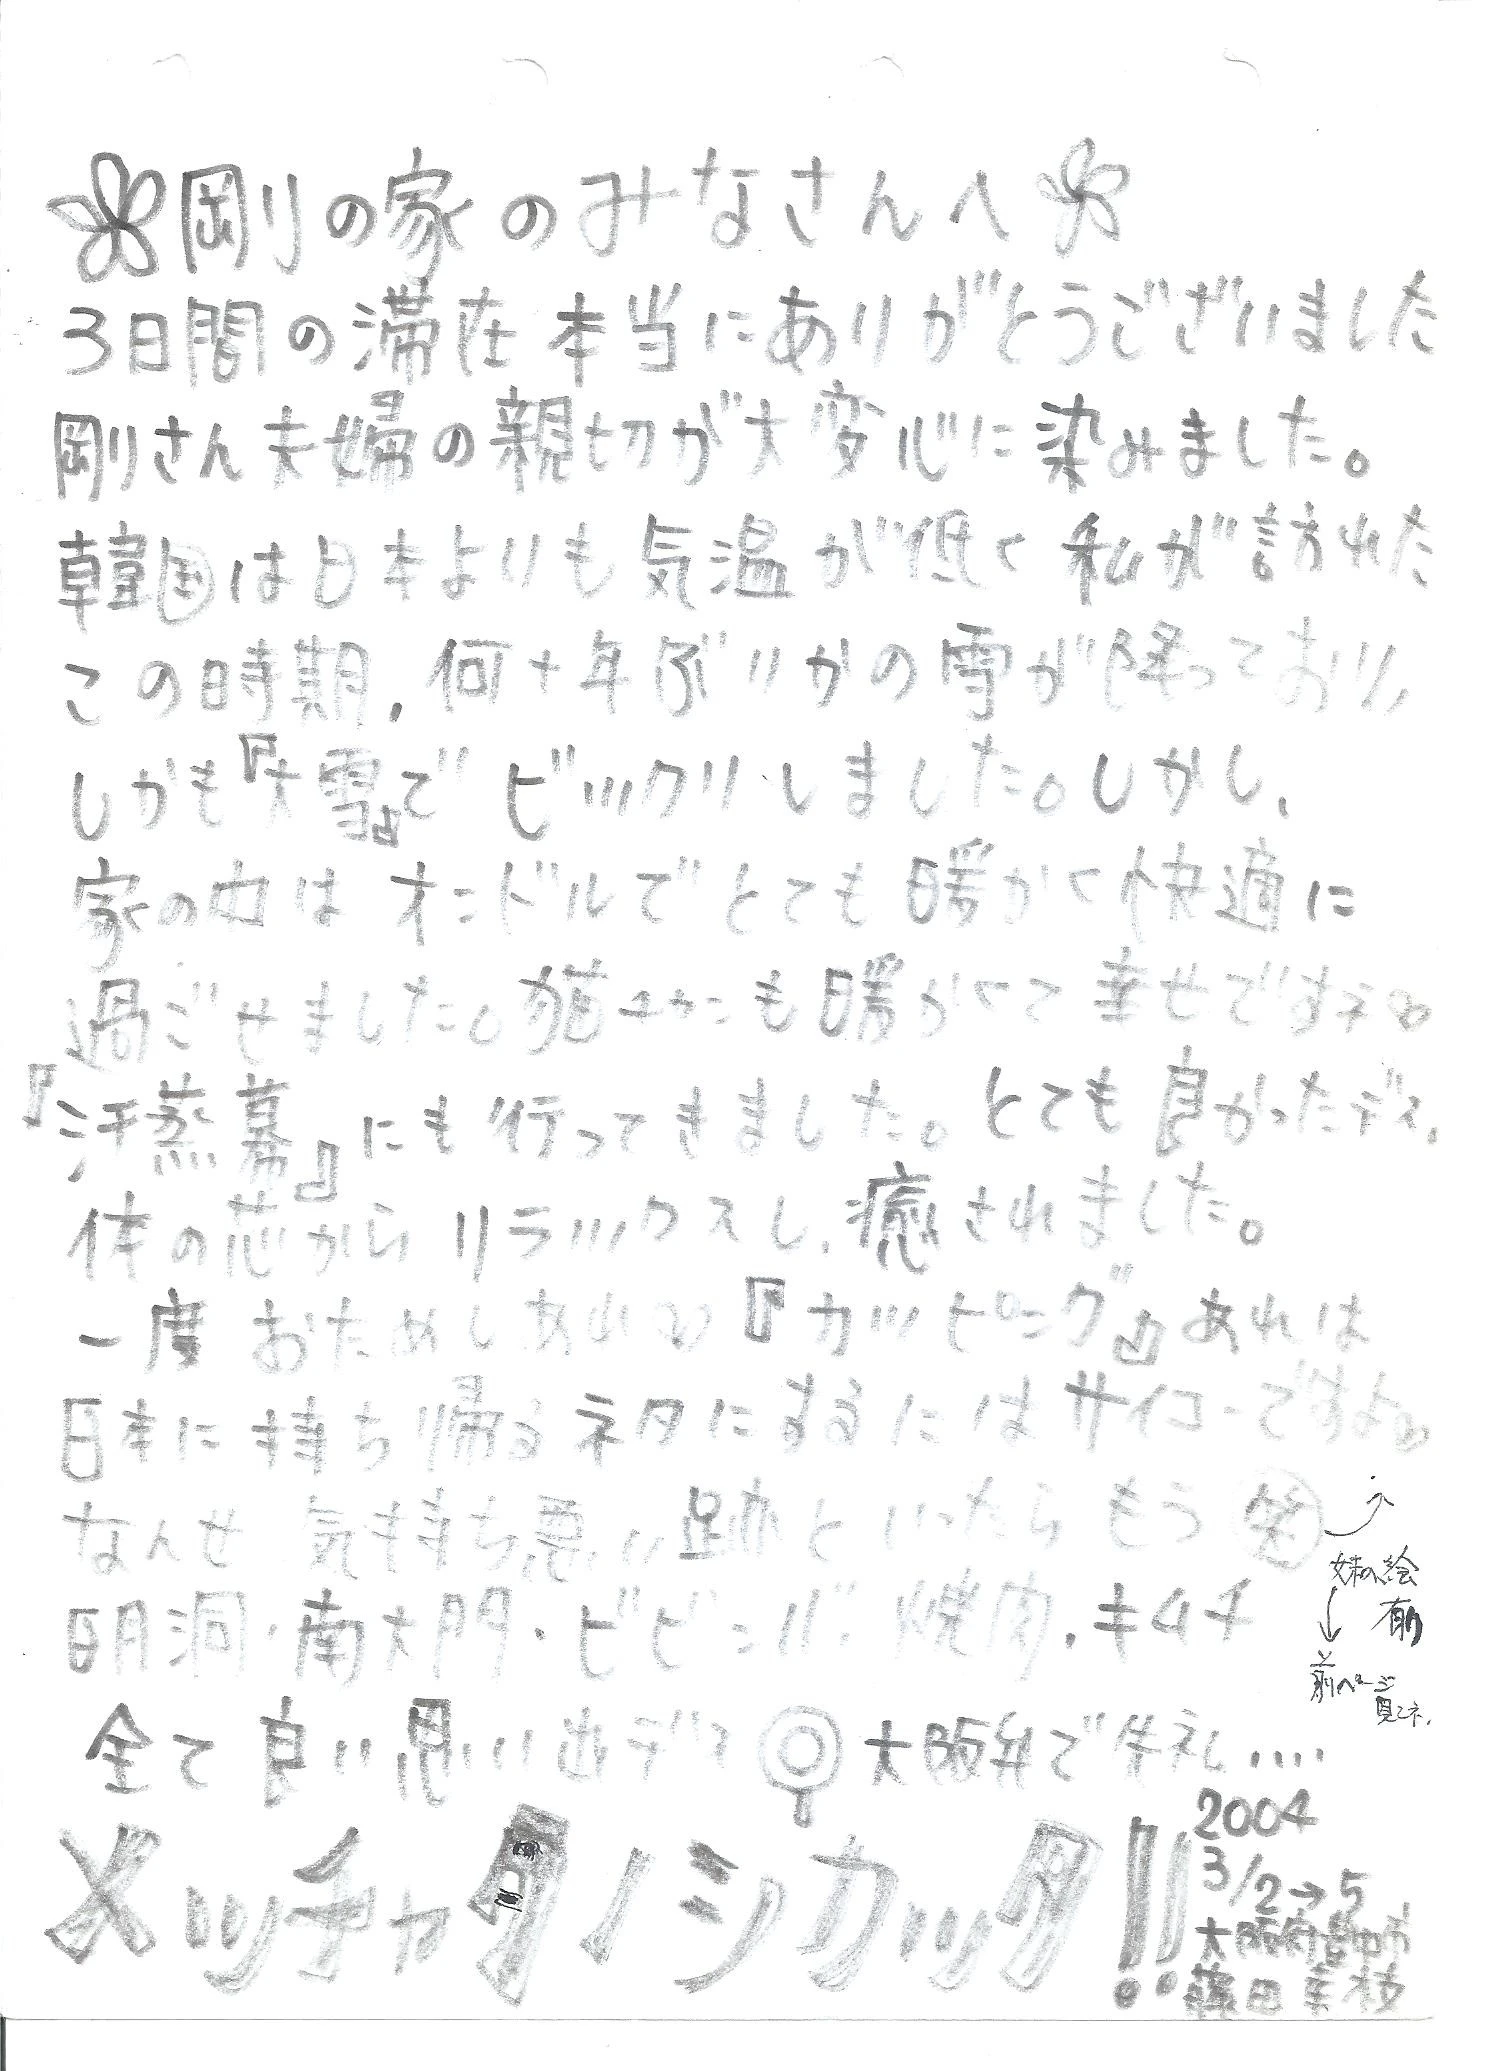 剛の家のみなさんへ
3日間の滞在本当にありがとうございました
剛さん夫婦の親切が大変心に染みました。
韓国は日本よりも気温が低く私が訪れた
この時期,何十年ぶりかの雪が降っており、
しかも『大雪』でビックリしました。しかし、
家の中はオンドルでとても暖かく快適に
過ごせました。猫チャンも暖かくて幸せですネ。
『汗蒸幕』にも行ってきました。とても良かったデス。
体の芯からリラックスし、癒されました。
一度おためしあれ『カッピング』あれは
日本に持ち帰るネタにするにはサイコーですよ
なんせ気持ち悪い跡といったらもう笑
妹の絵
有り
前ページ
見てネ.
明洞・南大門・ビビンバ 焼肉・キムチ
全て良い思い出デス 大阪弁で失礼....
メッチャタノシカッタ!!
2004
3/2→5
大阪府豊中市
藤田 枝